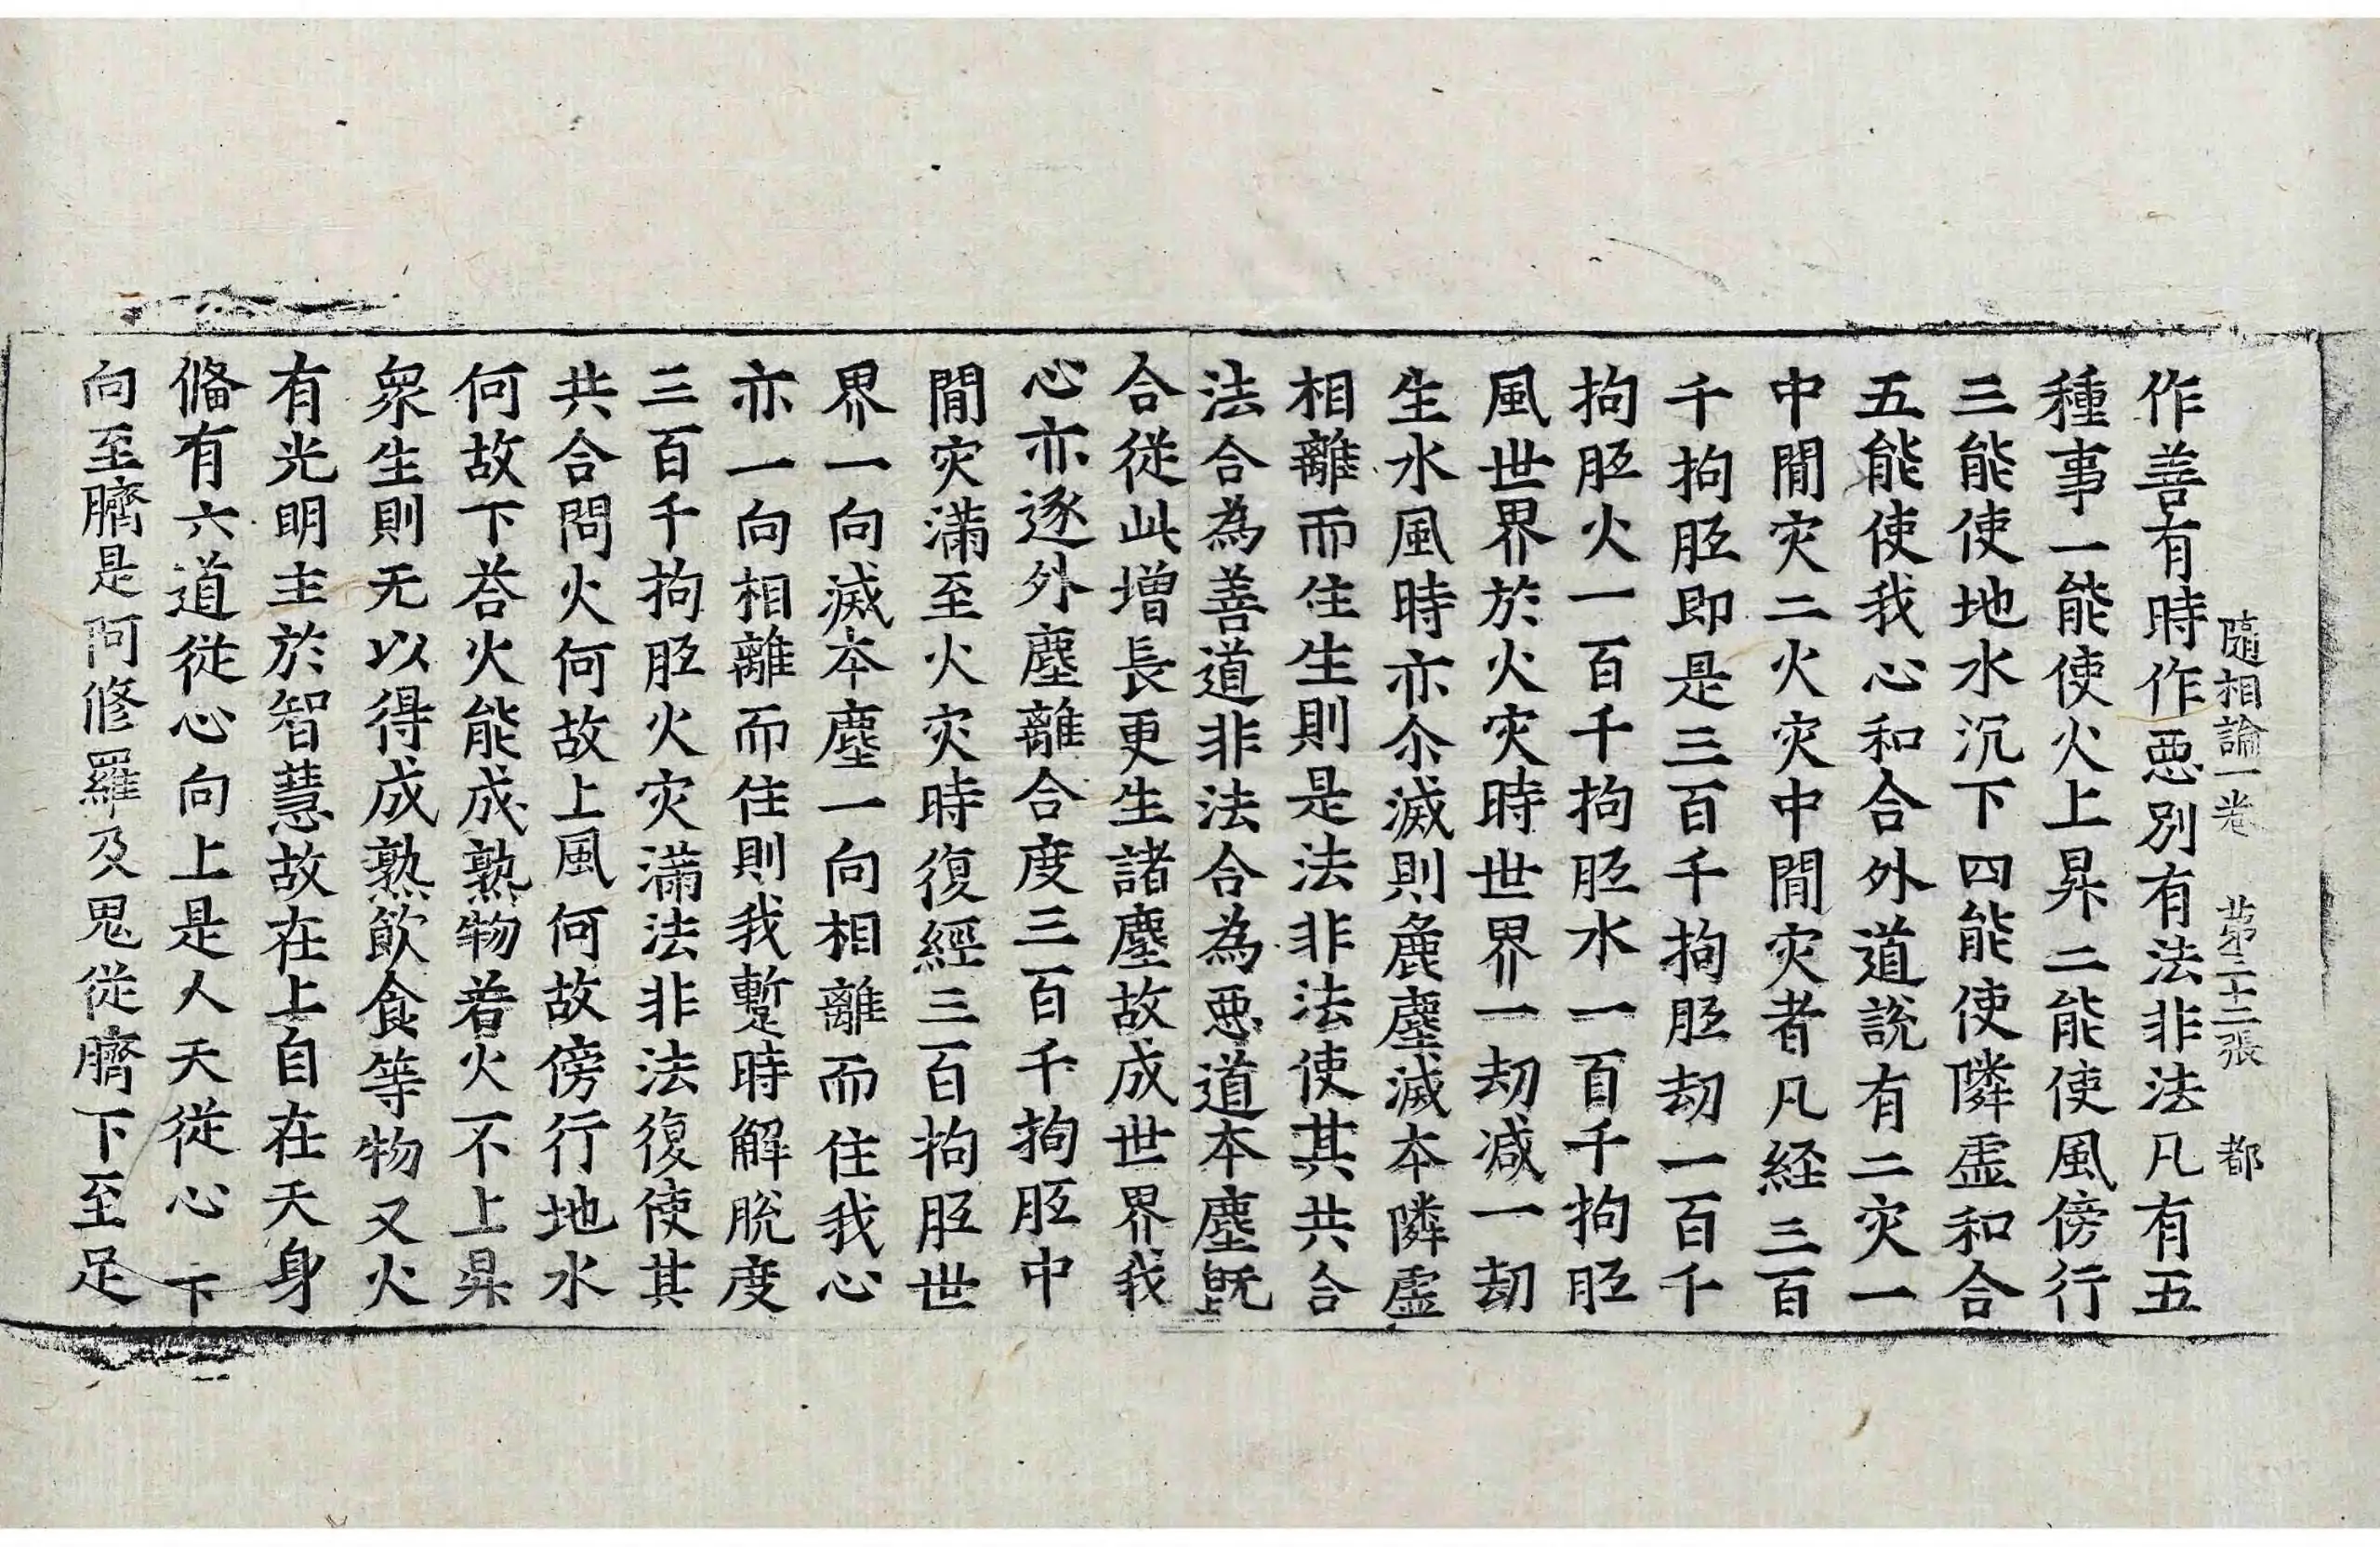 隨相論一卷 第二十二張 都
作善有時作惡別有法非法凡有五
種事一能使火上昇二能使風傍行
三能使地水沉下四能使隣虛和合
五能使我心和合外道說有二灾一
中閒灾二火灾中閒灾者凡経三百
千拘胝即是三百千拘胝劫一百千
拘胝火一百千拘胝水一百千拘胝
風世界於火灾時世界一劫減一劫
生水風時亦尒滅則麁塵滅本隣虛
相離而住生則是法非法使其共合
法合為善道非法合為惡道本塵既
合從此增長更生諸塵故成世界我
心亦逐外塵離合度三百千拘胝中
閒灾滿至火灾時復經三百拘胝世
界一向滅本塵一向相離而住我心
亦一向相離而住則我暫時解脫度
三百千拘胝火灾滿法非法復使其
共合問火何故上風何故傍行地水
何故下荅火能成熟物若火不上昇
衆生則无以得成熟飮食等物又火
有光明主於智慧故在上自在天身
偹有六道從心向上是人天從心下
向至臍是阿修羅及鬼從臍下至足